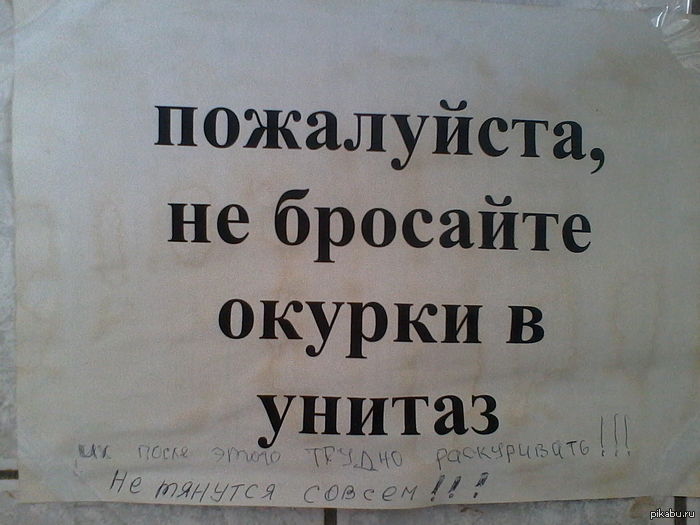 пожалуйста,
не бросайте
окурки в
унитаз
их после этого ТРУДНО раскуривать!!!
Не тянутся совсем!!!
pikabu.ru